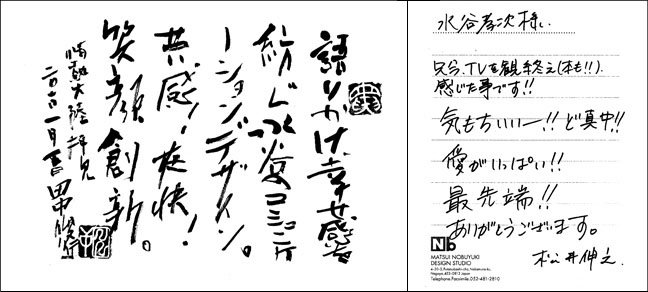 語りかけ、幸せ感を
紡ぐ水谷コミュニケ
ーションデザイン。
共感!爽快!
笑顔創新。
情熱大陸拝見
田中
水谷孝次様、
只今、TVを観終え(本も!!)、
感じた事です!!
気もちいいー!!ど真中!!
愛がいっぱい!!
最先端!!
ありがとうございます。
Nb
MATSUI NOBUYUKI
DESIGN STUDIO
Nagoya, 453-0812 Japan
Telephone.Facsimile.052-481-2810
松井伸之.